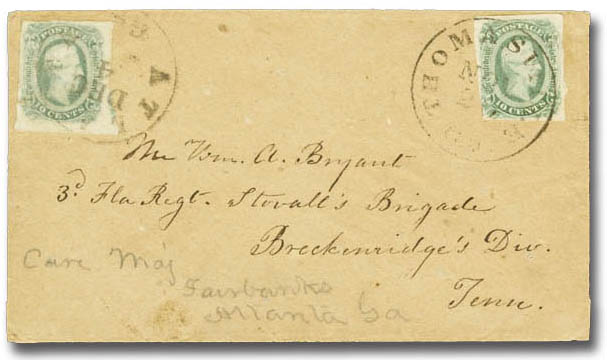 POSTAGE
10 CENTS
DEC
4
POSTAGE
10 CENTS
THOMASVI
Mr Wm. A. Bryant
3.d Fla Regt. Stovall's Brigade
Breckenridge's Div.
Tenn.
Care Maj
Fairbanks
Atlanta Ga